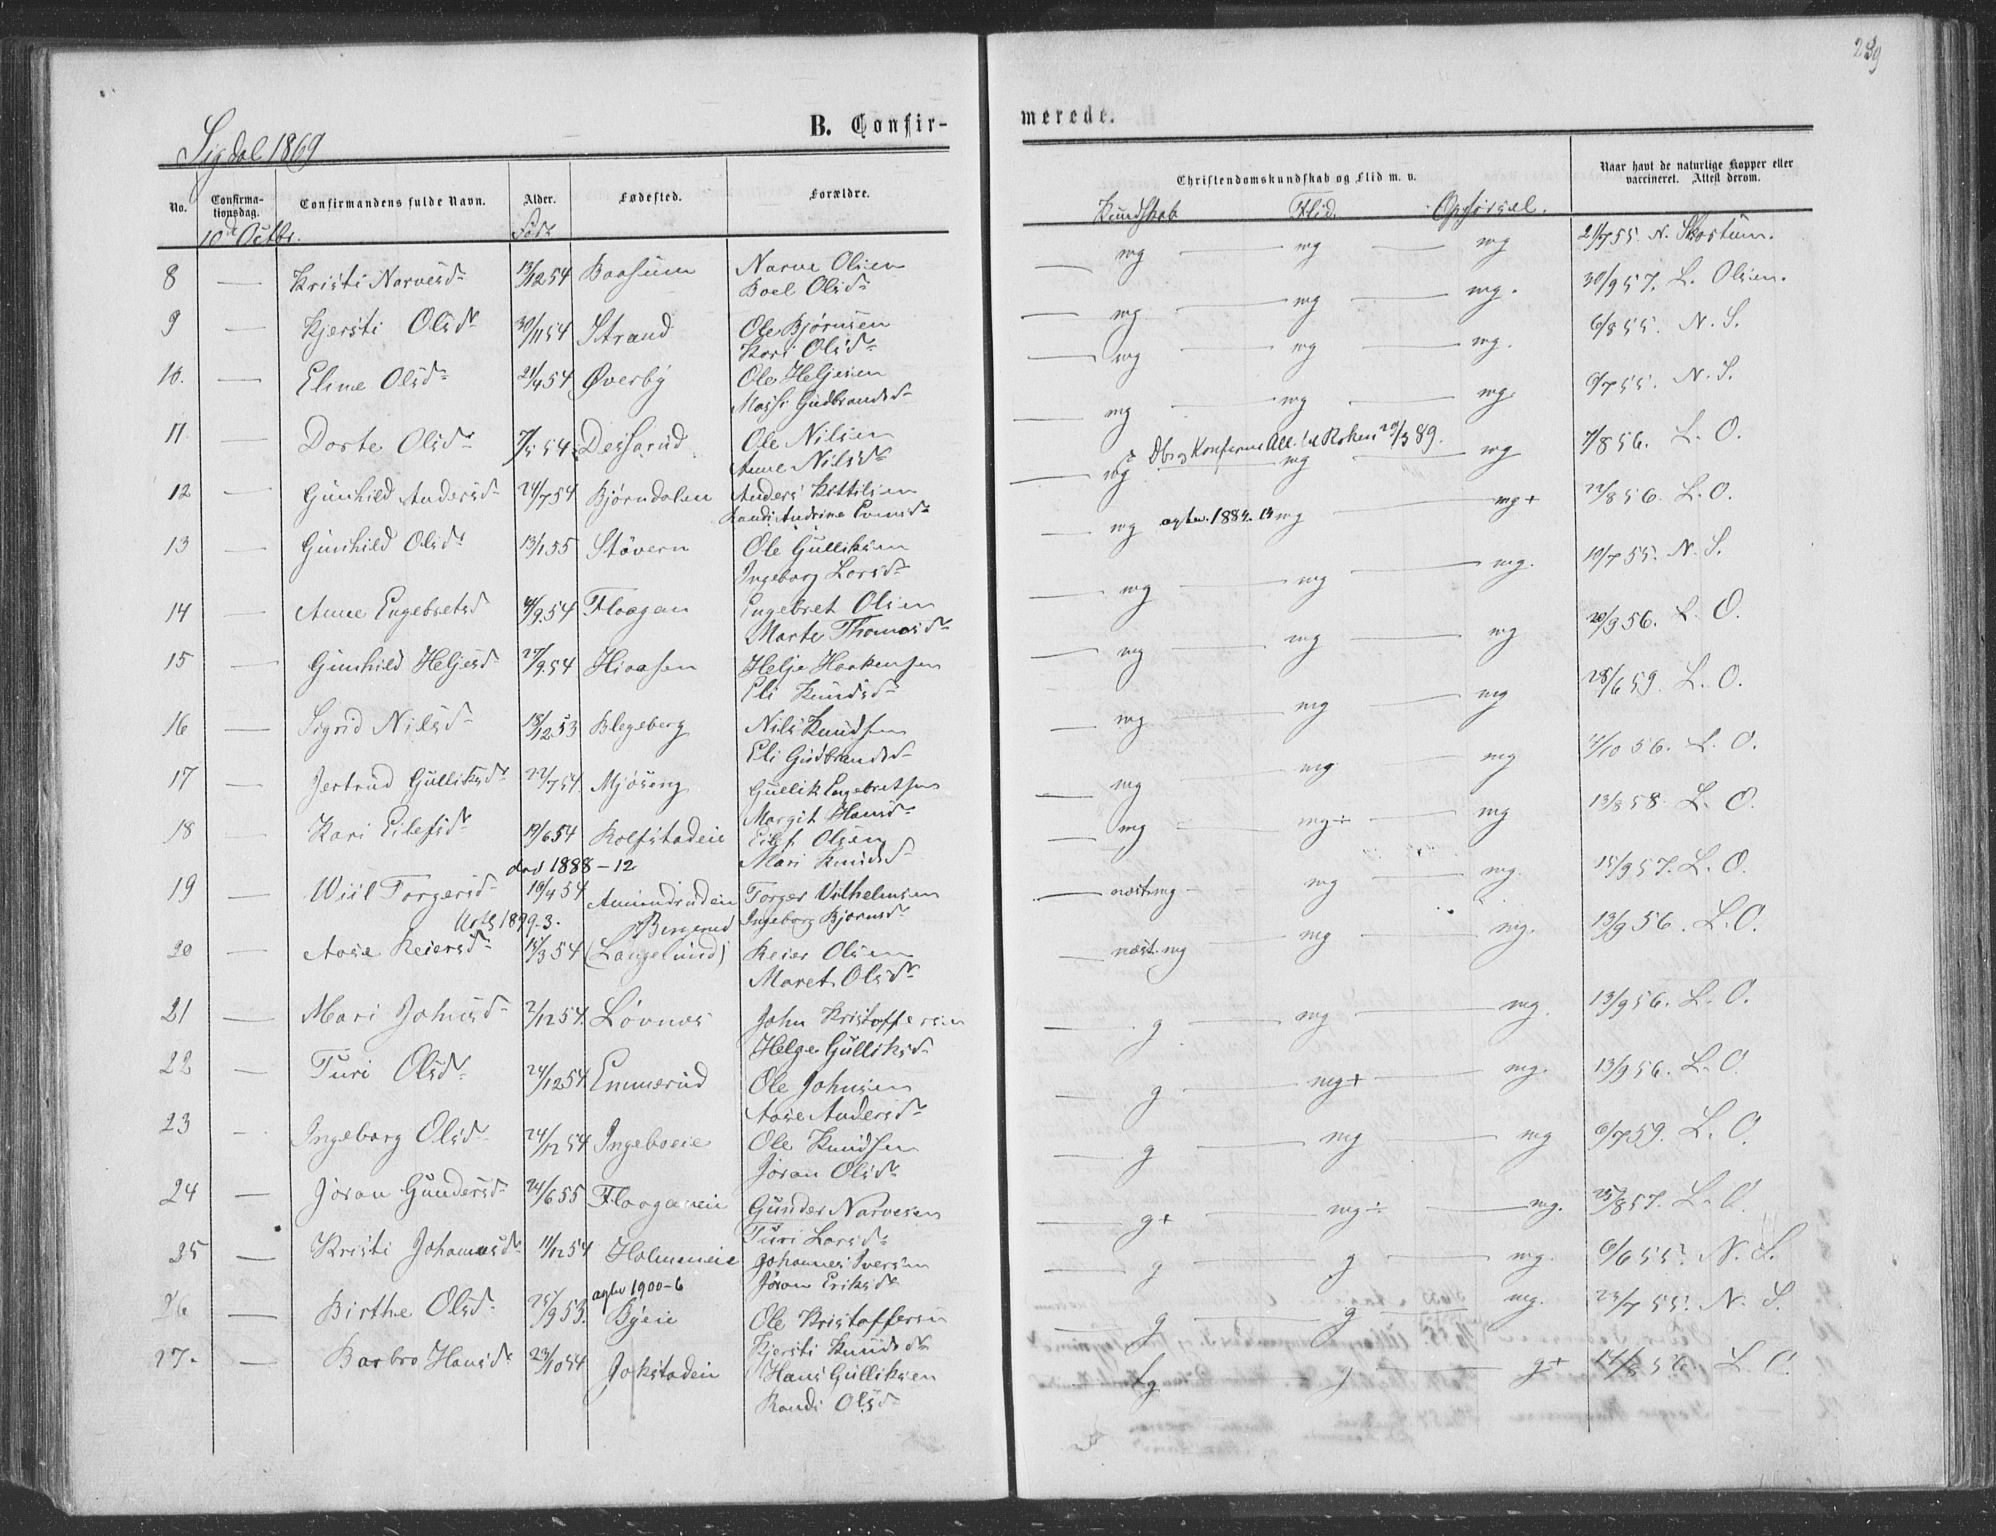 239
Sigdal 1869
B. Confir-
merede.
No.
Confirma-
tionsdag.
Confirmandens fulde Navn.
Alder.
Fødested.
Forældre.
Christendomskundskab og Flid m. v.
Naar havt de naturlige Kopper eller
vaccineret. Attest derom.
10 Octbr.
Født
Kundskab Flid. Opførsel.
8 — Kristi Narvesdr 13/12 54 Baasum Narve Olsen
Boel Olsdr
mg — mg — mg 21/7 55. N. Skartum.
9 — Kjersti Olsdr 30/11 54 Strand Ole Bjørnsen
Kari Olsdr
mg — mg — mg. 30/9 57. L. Olsen.
10. — Eline Olsdr 21/4 54 Øverby Ole Heljesen
Massi Gudbrandsdr
mg — mg — mg. 6/8 55. N. S.
11. — Dorte Olsdr 7/5 54 Dessarud Ole Nilsen
Anne Nilsdr
mg — mg — mg 6/7 55. N. S.
12 — Gunhild Andersdr 24/7 54 Bjørndalen Anders Kittilsen
Randi Andrine Evensdr
Db. og Konfirm. Att. til Røken 20/3 89.
mg — mg — mg 7/8 56. L. O.
13 — Gunhild Olsdr 13/1 55 Støvern Ole Gulliksen
Ingeborg Larsdr
mg 1889. mg — mg+ 22/8 56. L. O.
14 — Anne Engebretsd 9/9 54 Flaagan Engebret Olsen
Marte Thomasdr
mg — mg — mg. 10/7 55. N. S.
15 — Gunhild Heljesd 27/9 54 Hiaasen Helje Haakensen
Eli Knudsdr
mg — mg — mg 20/9 56. L. O.
16 — Sigrid Nilsdr 18/12 53 Blegeberg Nils Knudsen
Eli Gudbrandsdr
mg — mg — mg 28/6 59. L. O.
17 — Jertrud Gulliksdr 22/7 54 Mjøseng Gullik Engebretsen
Margit Hansdr
mg — mg — mg 4/10 56. L. O.
18 — Kari Eilefsdr 19/6 54 Kolfstadeie Eilef Olsen
Mari Knudsdr
mg — mg÷ — mg 13/8 58. L. O.
død 1888-12
19 — Wiil Torgersdr 10/4 54 Amundrudeie Torger Vilhelmsen
Ingeborg Bjørnsdr
næst mg — mg — mg. 15/9 57. L. O.
1899.3. Bergerud
20 — Aase Reiersdr 15/3 54 (Langelinid) Reier Olsen
Maret Olsdr
næst mg — mg — mg. 13/9 56. L. O.
21 — Mari Johnsdr 2/12 54. Løvnæs John Kristoffersen
Helge Gulliksdr
g — mg — mg. 13/9 56. L. O.
22 — Turi Olsdr 24/12 54 Emmerud Ole Johnsen
Aase Andersdr
g — mg+ — mg. 13/9 56. L. O.
23 — Ingeborg Olsdr 24/12 54 Ingeboeie Ole Knudsen
Jøran Olsdr
g — mg — mg 6/7 59. L. O.
24 — Jøran Gundersdr 24/6 55 Flaaganeie Gunder Narvesen
Turi Larsdr
g+ — mg÷ — mg. 25/8 57. L. O.
25 — Kristi Johannesdr 11/12 54 Holmeneie Johannes Iversen
Jøran Eriksdr
g — g — mg. 6/6 55. N. S.
1900-6
26 — Birthe Olsdr 25/9 53. Byeie Ole Kristoffersen
Kjersti Knudsdr
g — g — mg. 23/7 55. N. S.
27. — Barbro Hansdr 23/10 54 Jokstadeie Hans Gulliksen
Randi Olsdr
tg — g — g+ 14/8 56. L. O.